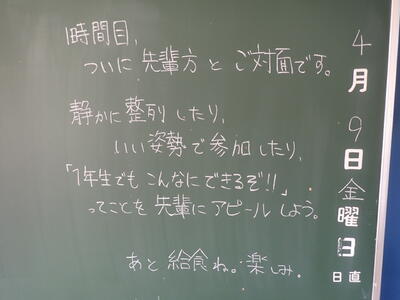 1時間目、
ついに先輩方とご対面です。
静かに整列したり、
いい姿勢で参加したり、
「1年生でもこんなにできるぞ!!」
ってことを先輩にアピールしよう。
あと給食ね。楽しみ。
4月9日金曜日
日直